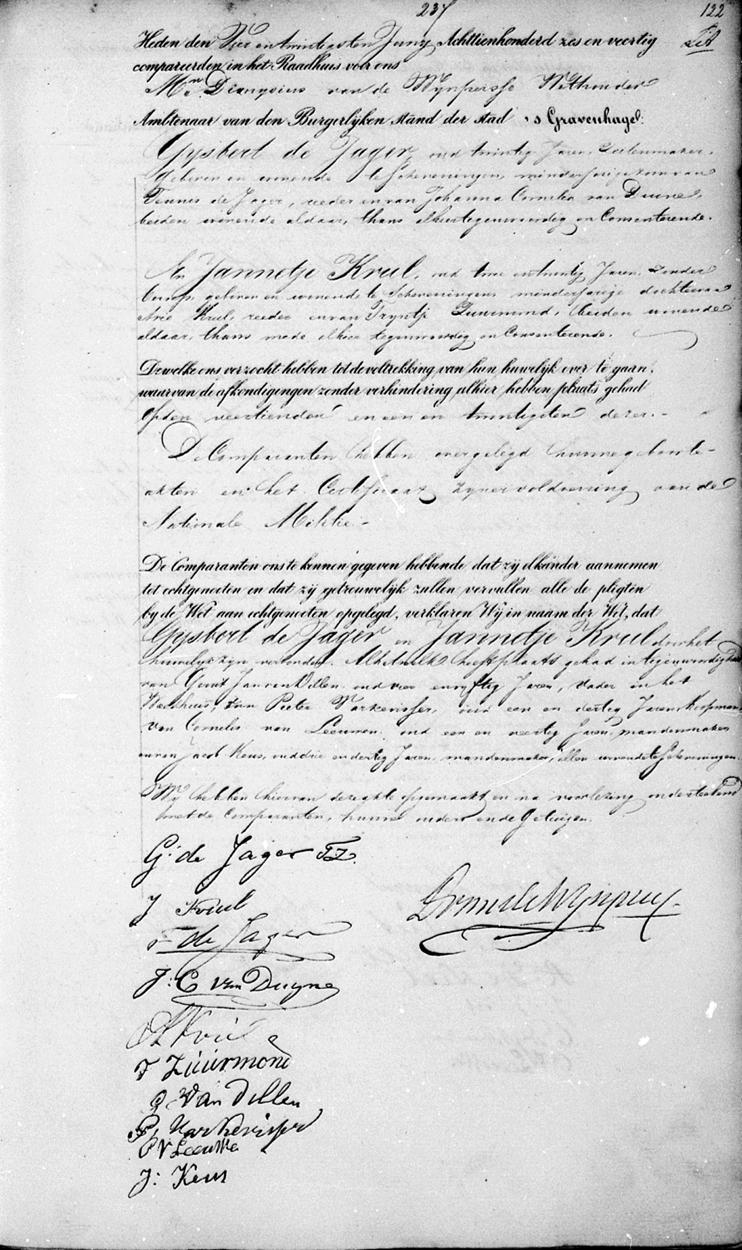 237
122
Heden den Vier en twintigsten Juny Achttienhonderd zes en veertig
compareerden in het Raadhuis voor ons
Mr. Dionysius van de Wynpersse Wethouder
Ambtenaar van den Burgerlijken Stand der stad 's Gravenhage.
Gysbert de Jager, oud twintig Jaren,
geboren en wonende te Scheveningen, minderjarige zoon van
Teunis de Jager, reeder en van Johanna Cornelia van Duyne,
beiden wonende aldaar, thans alhier tegenwoordig en Consenterende.
En Jannetje Krul, oud twee en twintig Jaren, Zonder
beroep geboren en wonende te Scheveningen minderjarige dochter van
Arie Krul, reeder en van Tryntje Zuurmond, beiden wonende
aldaar, thans mede alhier tegenwoordig en Consenterende.
Dewelke ons verzocht hebben tot de voltrekking van hun huwelijk over te gaan,
waarvan de afkondigingen zonder verhindering alhier hebben plaats gehad
Op den veertienden en een en twintigsten dezer.
De Comparanten hebben overgelegd hunne geboorte-
akten en het Certificaat zyner voldoening aan de
Nationale Militie.
De Comparanten ons te kennen gegeven hebbende dat zij elkander aannemen
tot echtgenooten en dat zij getrouwelijk zullen vervullen alle de pligten
bij de Wet aan echtgenooten opgelegd, verklaren Wij in naam der Wet, dat
Gysbert de Jager en Jannetje Krul door het
huwelyk zyn verbonden. Alhetwelk heeft plaats gehad in tegenwoordigheid
van Gerrit Jan van Dillen oud vier en vyftig Jaren, vader in het
Weeshuis, van Pieter Varkevisser, oud een en dertig Jaren Koopman
van Cornelis van Leeuwen, oud een en veertig Jaren, mandenmaker
en van Jacob Keus, oud drie en dertig Jaren, mandenmaker, allen wonende te Scheveningen.
Wy hebben hiervan deze akte opgemaakt en na voorlezing onderteekend
met de Comparanten, hunne ouders en de Getuigen.
G: de Jager TZ.
J Krul
T de Jager
J: C van Duyne
A Krul
T Zuurmond
G J Van Dillen
P. Varkevisser
C V Leeuwen
J: Keus